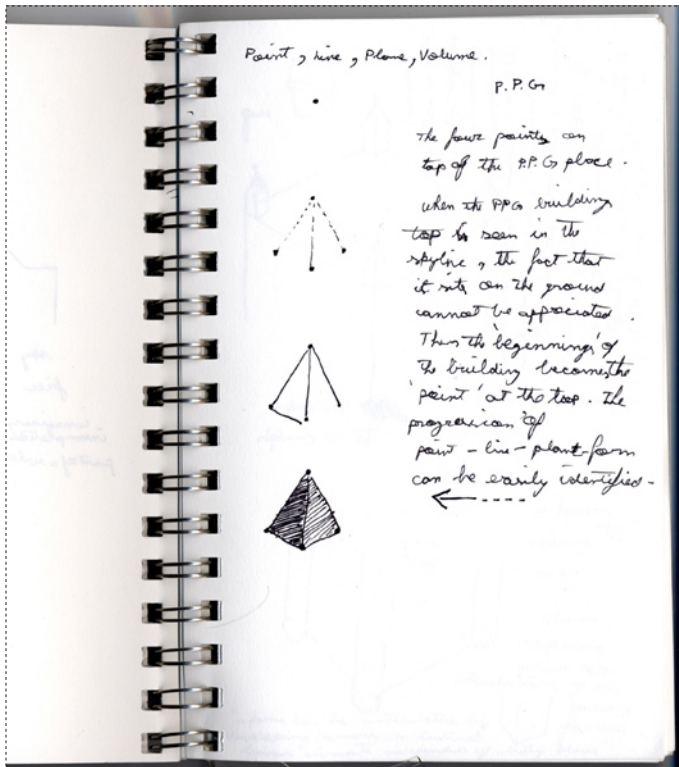 Point, Line, Plane, Volume.
P.P.G
The four points on
top of the P.P.G place.
when the PPG building
top is seen in the
skyline, the fact that
it sits on the ground
cannot be appreciated.
Then the 'beginnings' of
the building becomes the
'point' at the top. The
progression of
point - line - plant - form
can be easily identified -